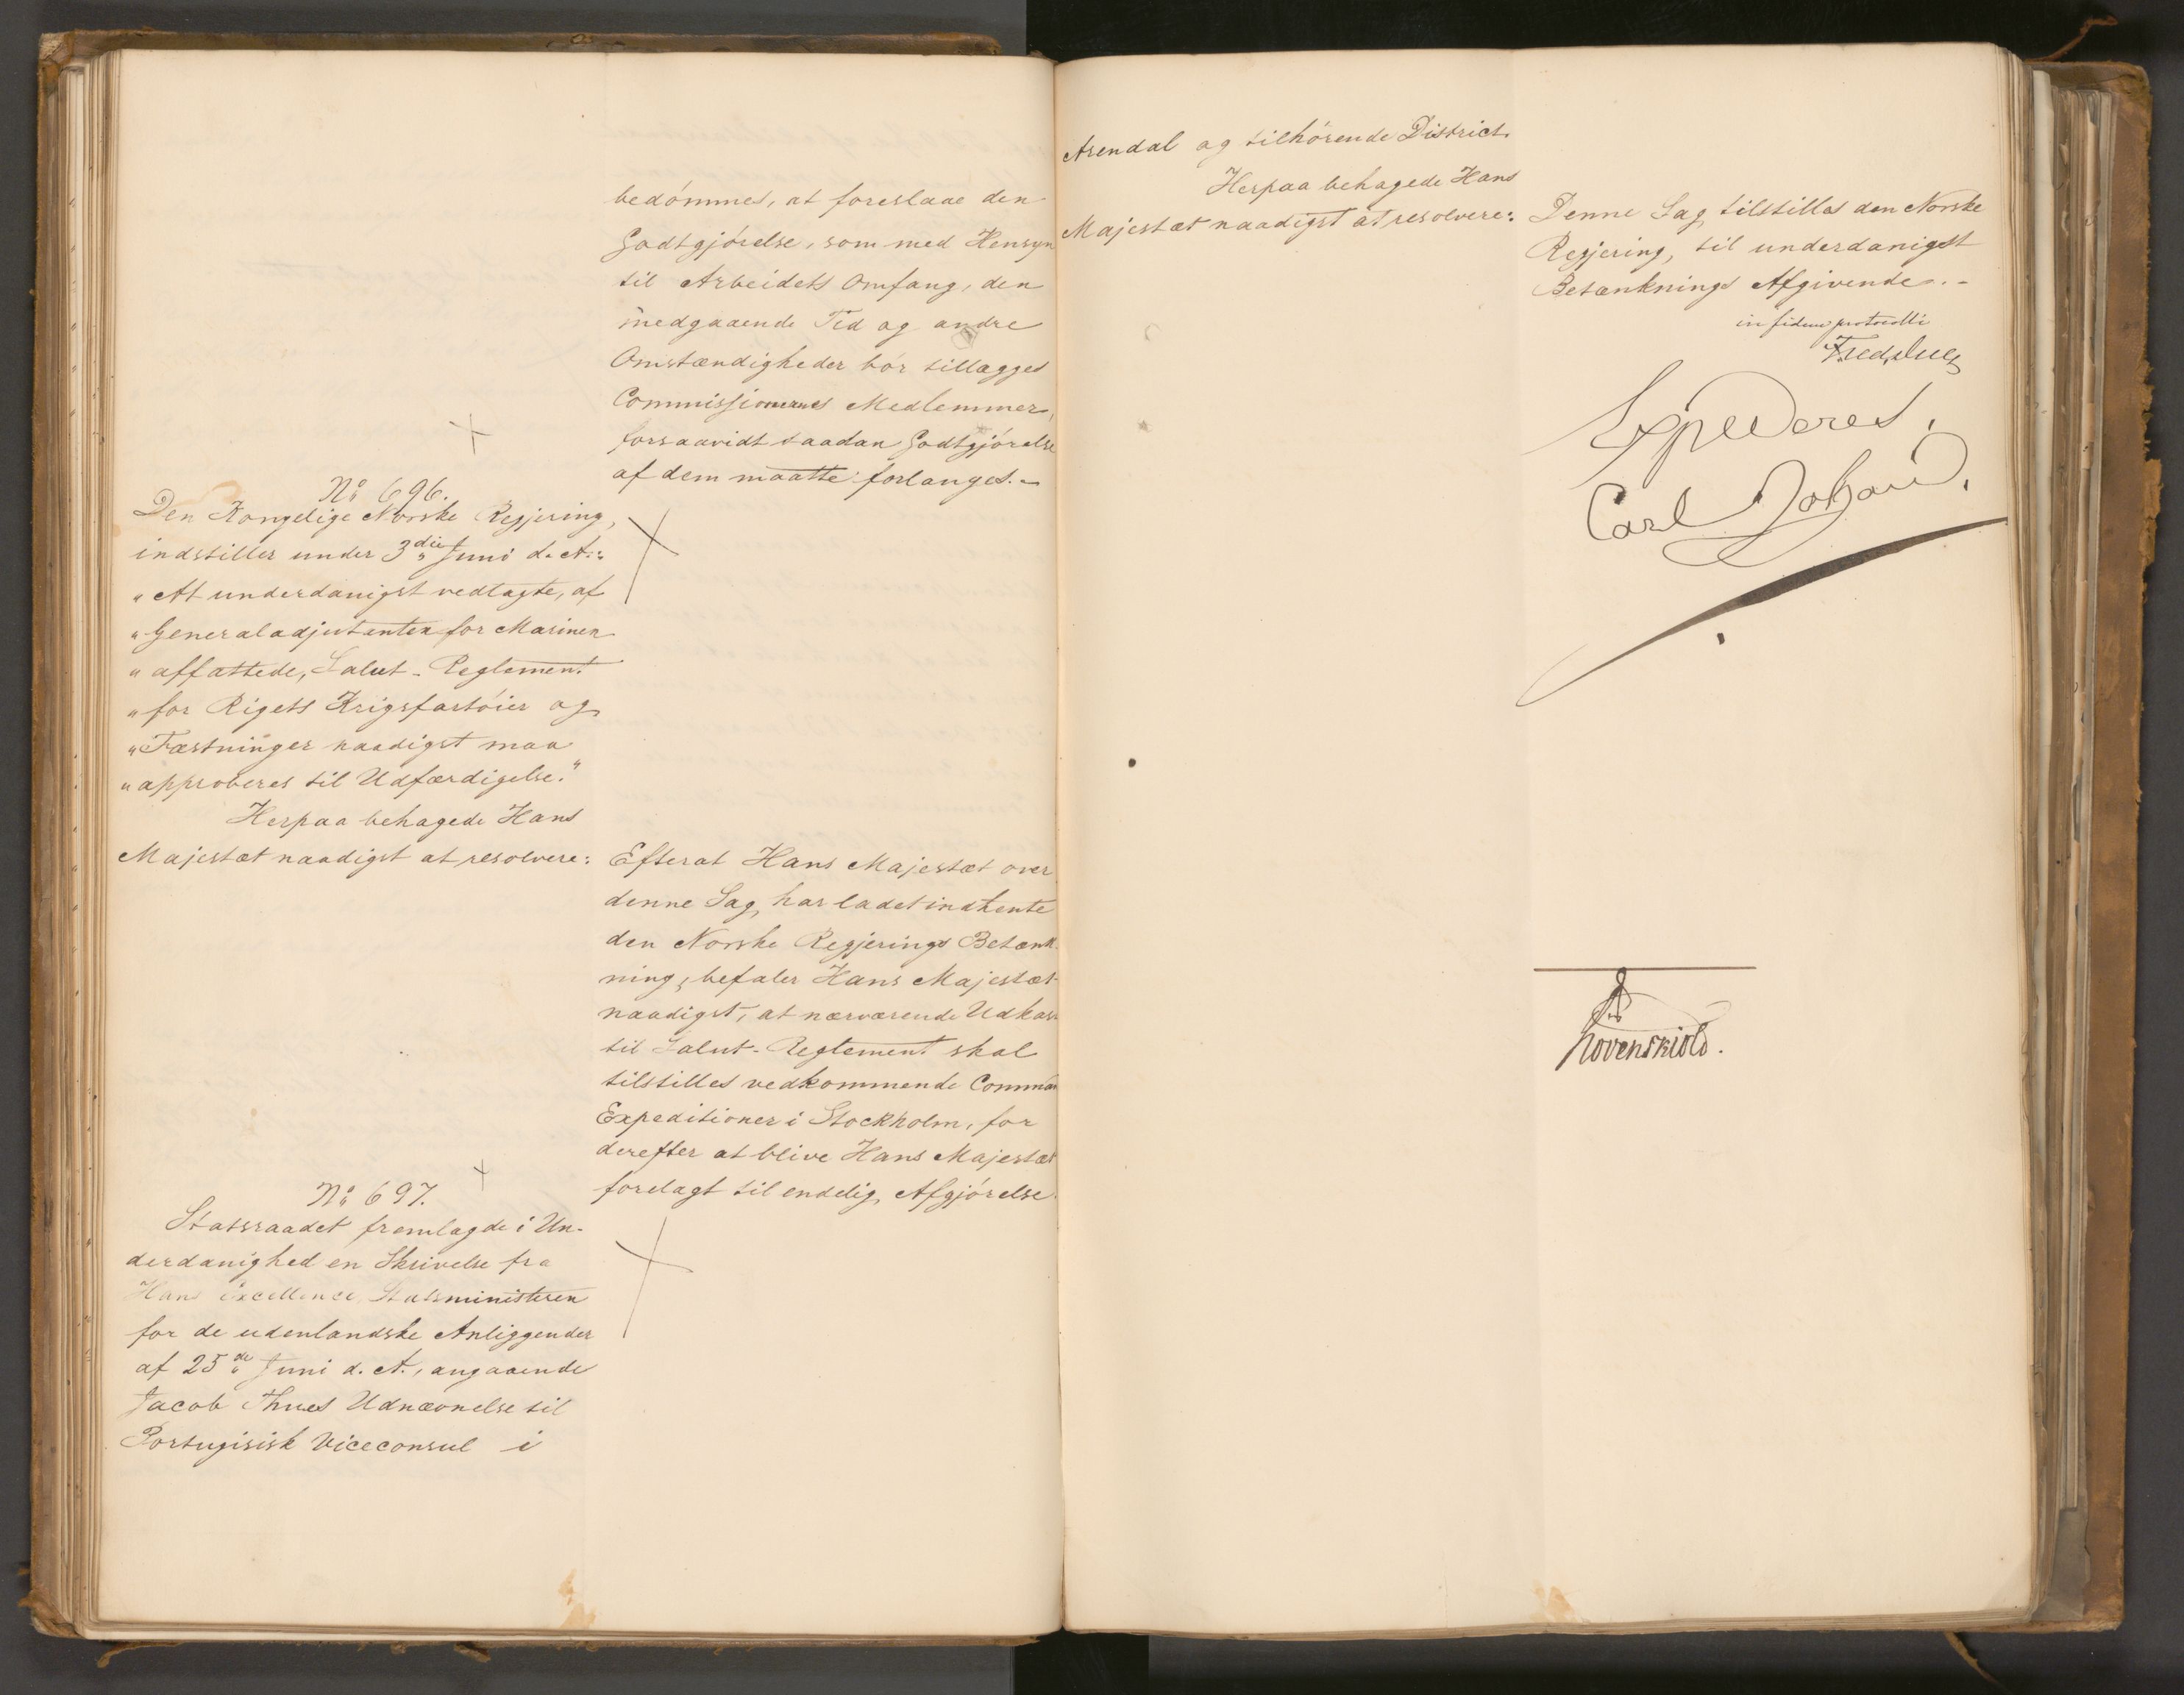 bedómmes, at foreslaae den
Godtgjórelse, som med Hensyn
til Arbeidets Omfang, den
medgaaende Tid og andre
Omstændigheder bór tillægges
Commissionernes Medlemmer,
forsaavidt saadan Godtgjórelse
af dem maatte forlanges. -
No 696.
Den Kongelige Norske Regjering,
indstiller under 3die Juni d. A.:
"At underdanigst vedlagte, af
"Generaladjutanten for Marinen
"affattede, Salut-Reglement
"for Rigets Krigsfartóier og
"Fæstninger naadigst maa
"approberes til Udfærdigelse."
Herpaa behagede Hans
Majestæt naadigst at resolvere:
Efterat Hans Majestæt over
denne Sag, har ladet indhente
den Norske Regjerings Betænk-
ning, befaler Hans Majestæt
naadigst, at nærværende Udkast
til Salut-Reglement skal
tilstilles vedkommende
Expeditioner i Stockholm, for
derefter at blive Hans Majestæt
forelagt til endelig Afgjórelse.
No 697.
Statsraadet fremlagde i Un-
derdanighed en Skrivelse fra
Hans Excellence Statsministeren
for de udenlandske Anliggender
af 25de Juni d. A., angaaende
Jacob Thues Udnævnelse til
Portugisisk Viceconsul i
Arendal og tilhórende District.
Herpaa behagede Hans
Majestæt naadigst at resolvere:
Denne Sag tilstilles den Norske
Regjering, til underdanigst
Betænknings Afgivende. -
in fidem protocolli
Fred. Due
Expederes.
Carl Johan.
Lövenskiold.